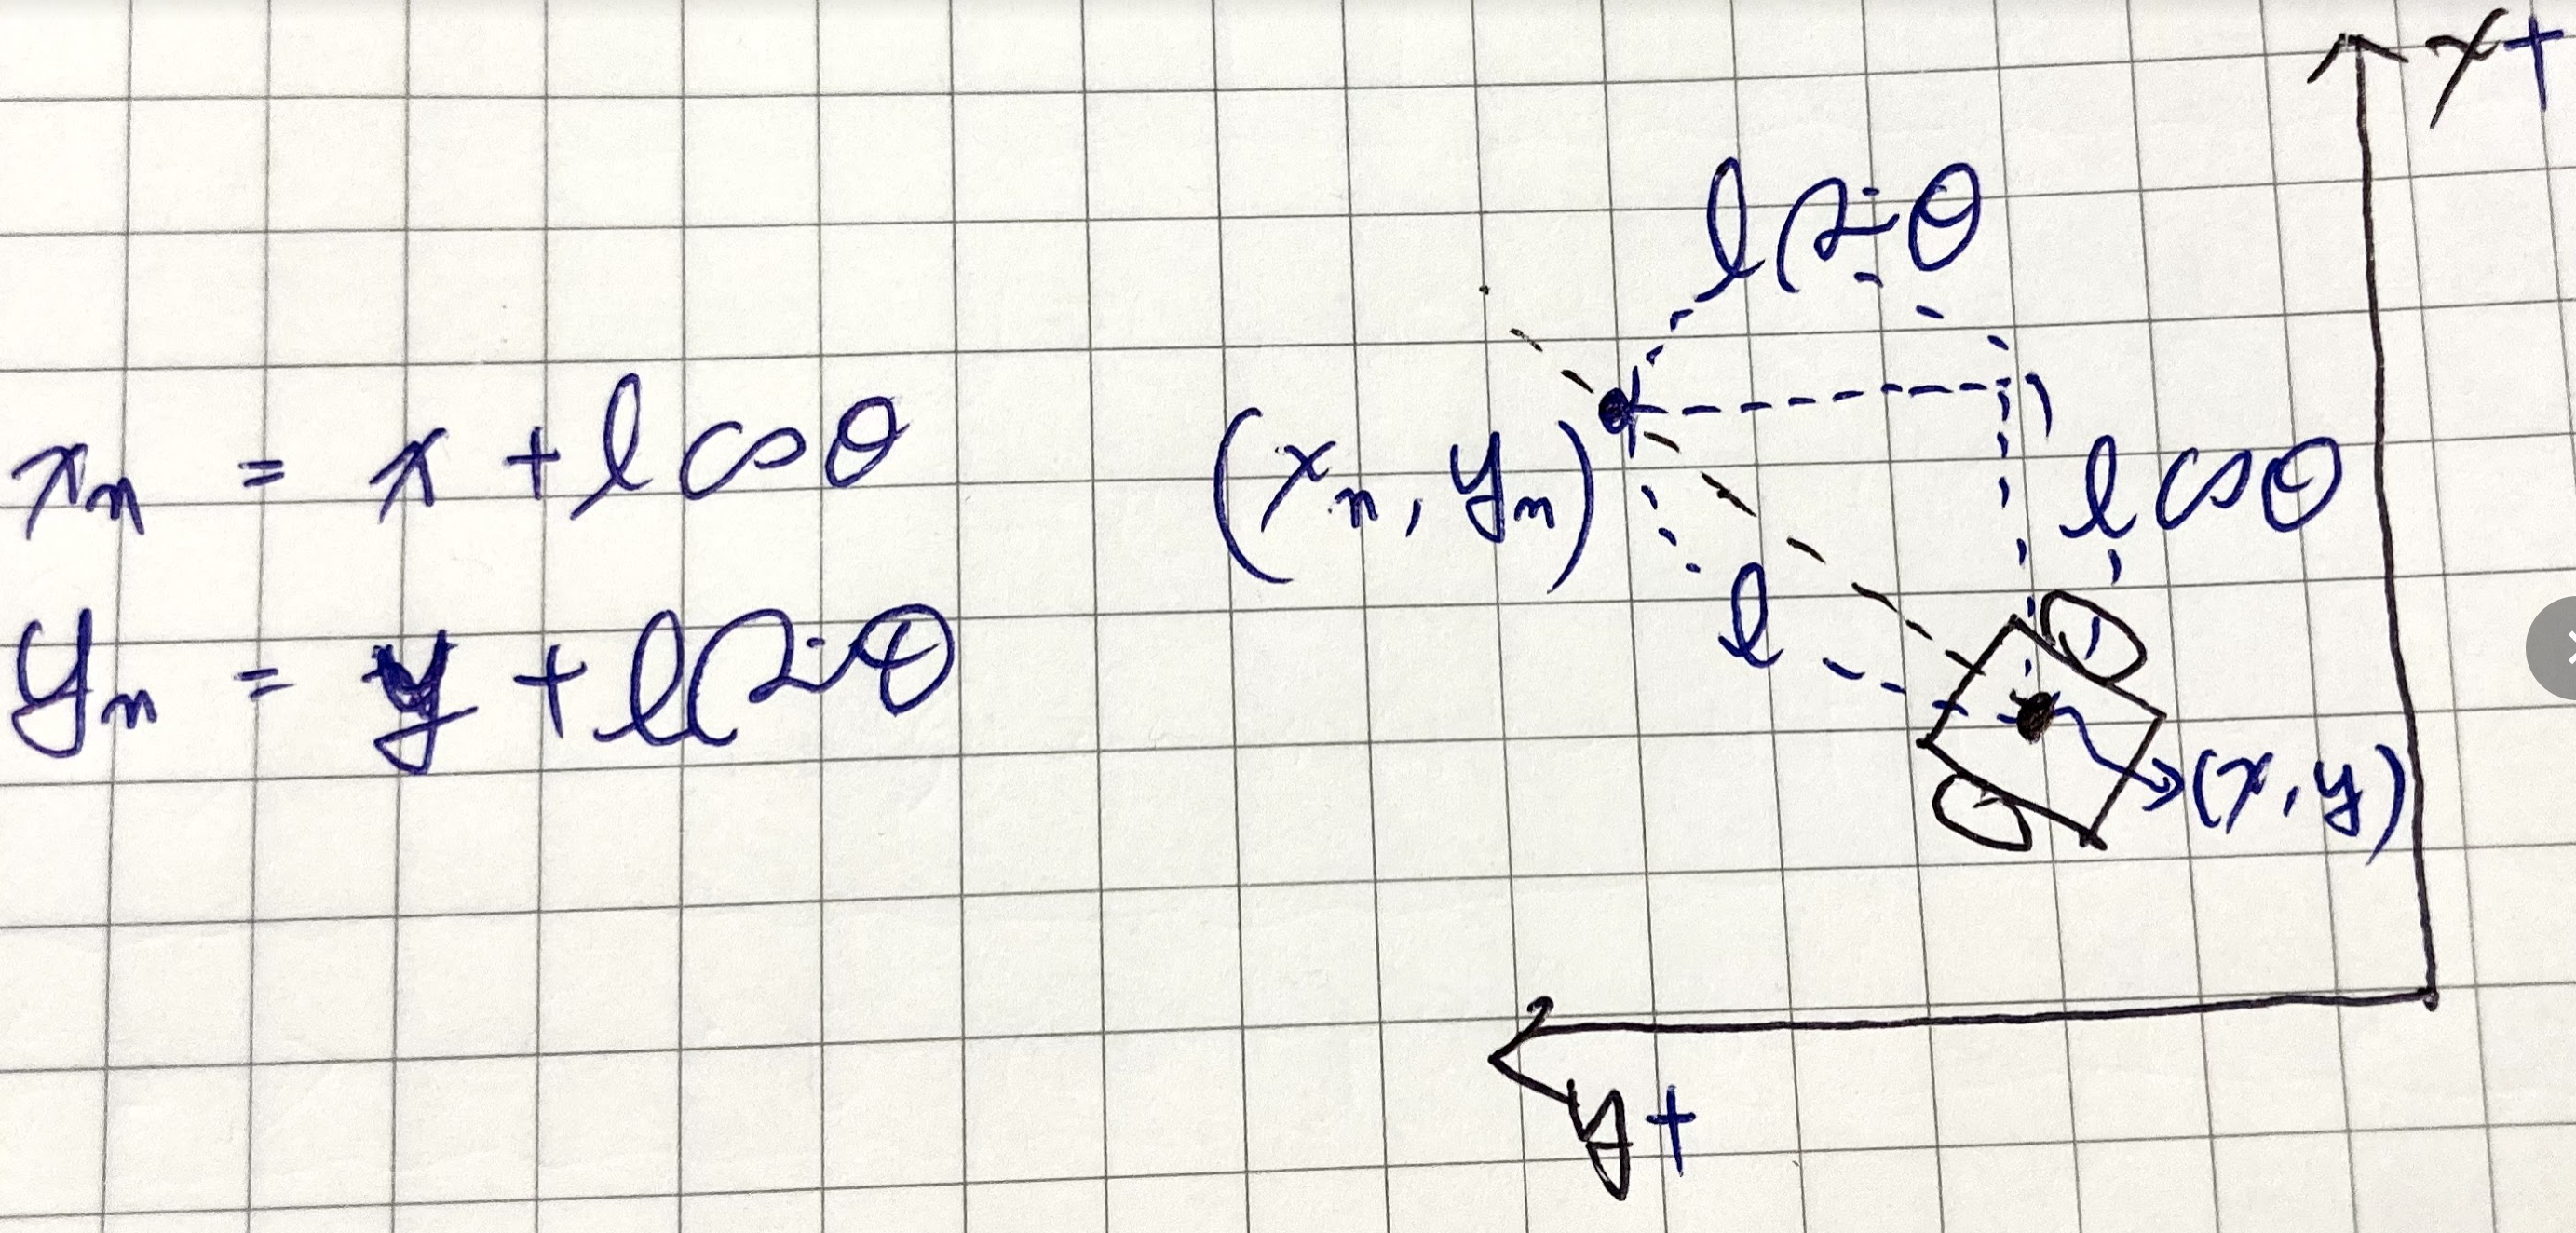 xₙ = x + l cos θ
yₙ = y + l sin θ
x+
l sin θ
(xₙ, yₙ)
l cos θ
l
(x, y)
y+